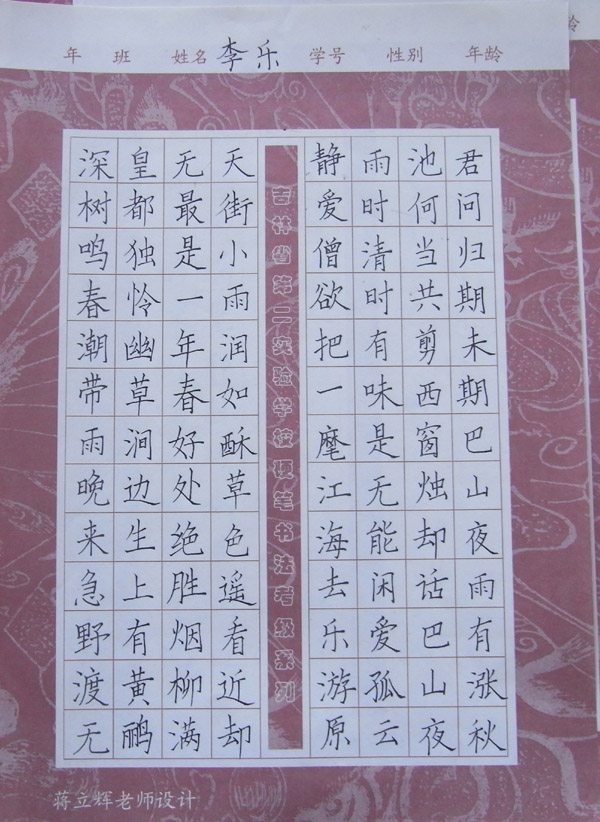 年 班 姓名 李乐 学号 性别 年龄
龄
君问归期未期巴山夜雨有涨秋
池何当共剪西窗烛却话巴山夜
雨时清时有味是无能闲爱孤云
静爱僧欲把一麾江海去乐游原
吉林省第二实验学校硬笔书法考级系列
天街小雨润如酥草色遥看近却
无最是一年春好处绝胜烟柳满
皇都独怜幽草涧边生上有黄鹂
深树鸣春潮带雨晚来急野渡无
蒋立辉老师设计